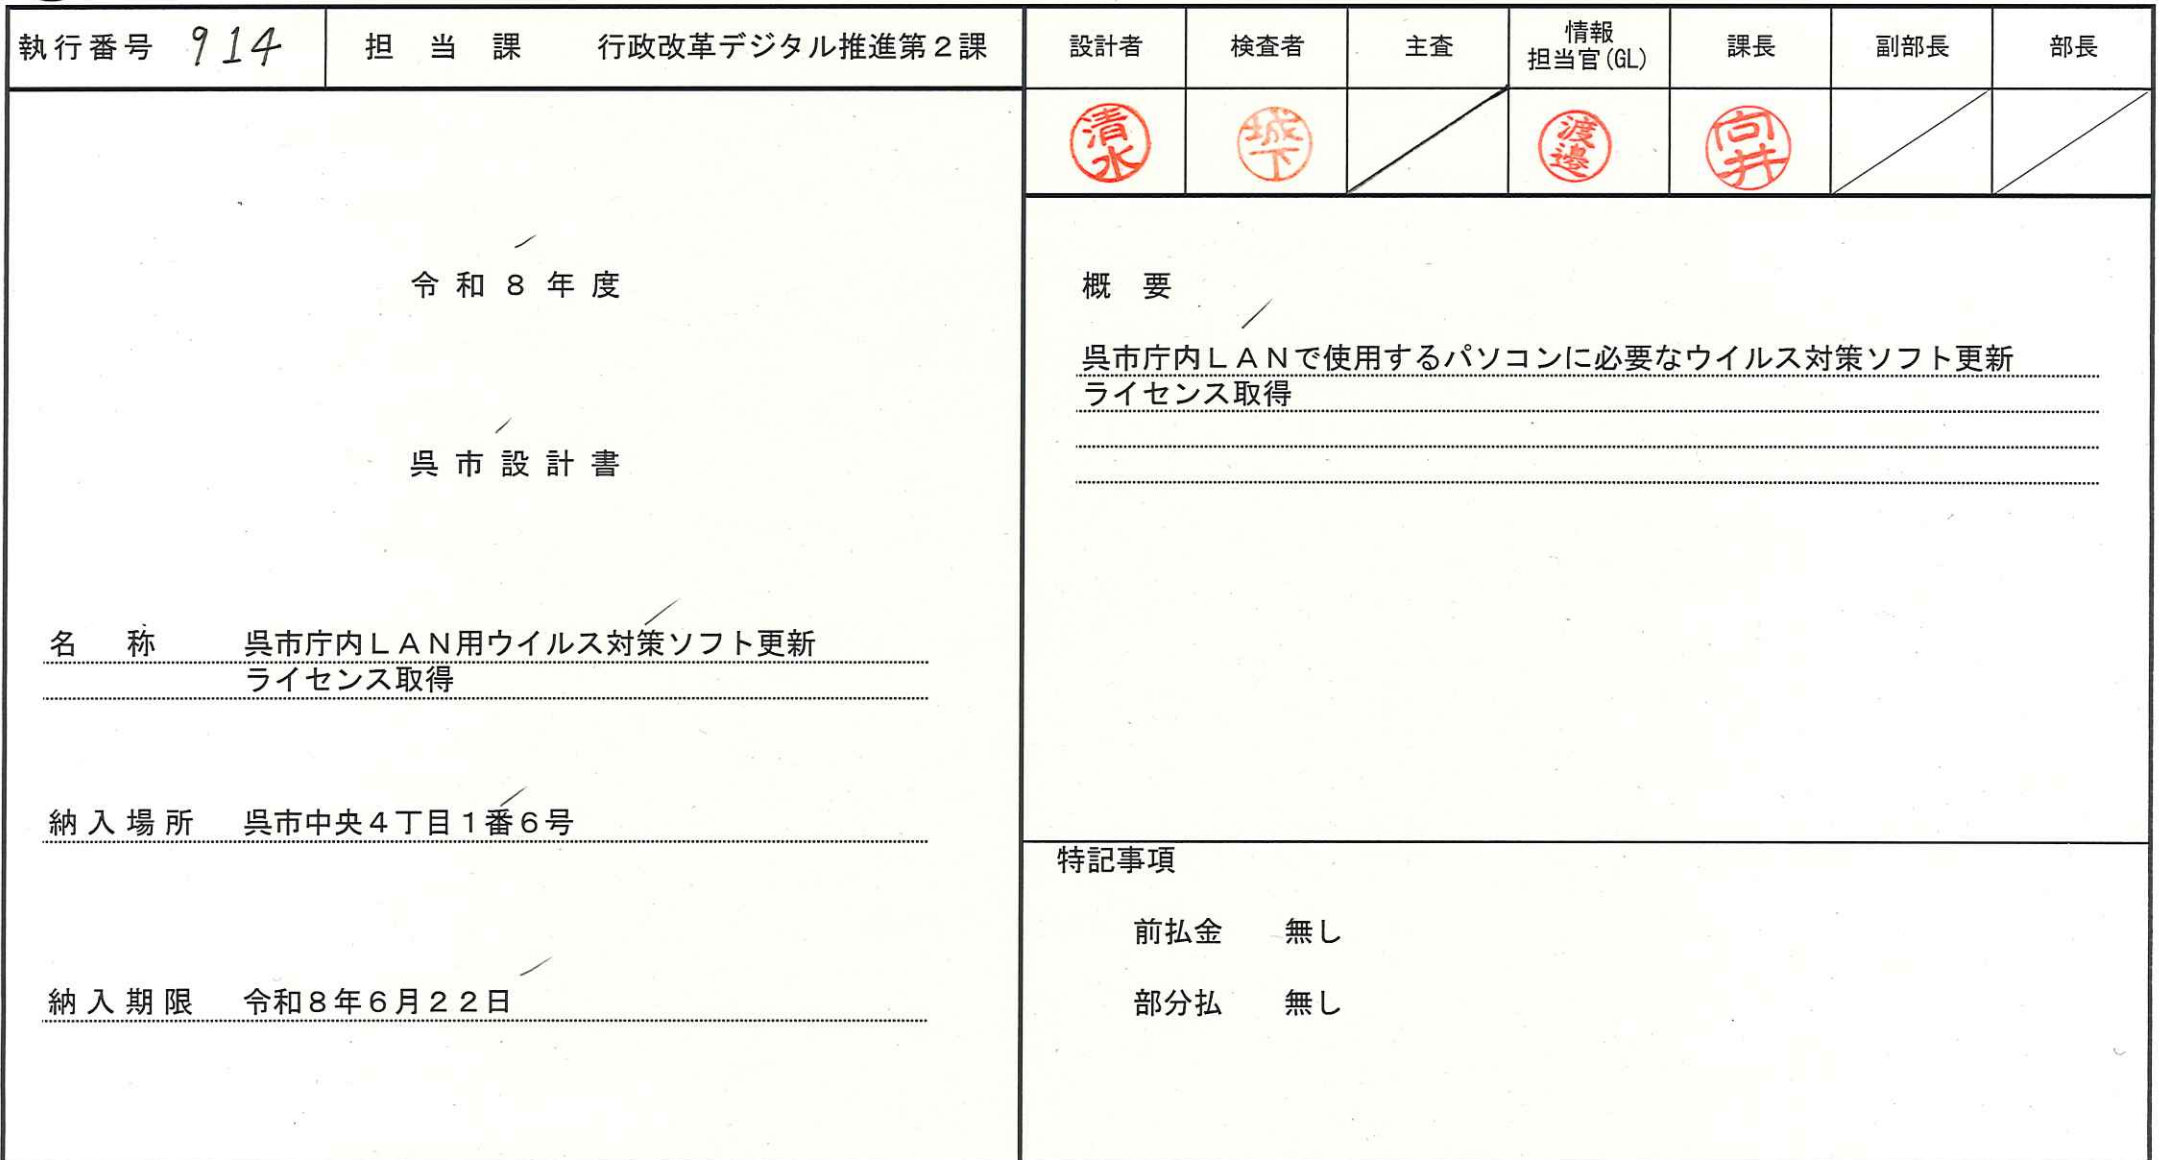 執行番号 914 担当課 行政改革デジタル推進第２課
設計者 検査者 主査 情報担当官(GL) 課長 副部長 部長
清水 城下 渡邊 向井
令和８年度
呉市設計書
名称 呉市庁内ＬＡＮ用ウイルス対策ソフト更新
ライセンス取得
納入場所 呉市中央４丁目１番６号
納入期限 令和８年６月２２日
概要
呉市庁内ＬＡＮで使用するパソコンに必要なウイルス対策ソフト更新
ライセンス取得
特記事項
前払金 無し
部分払 無し